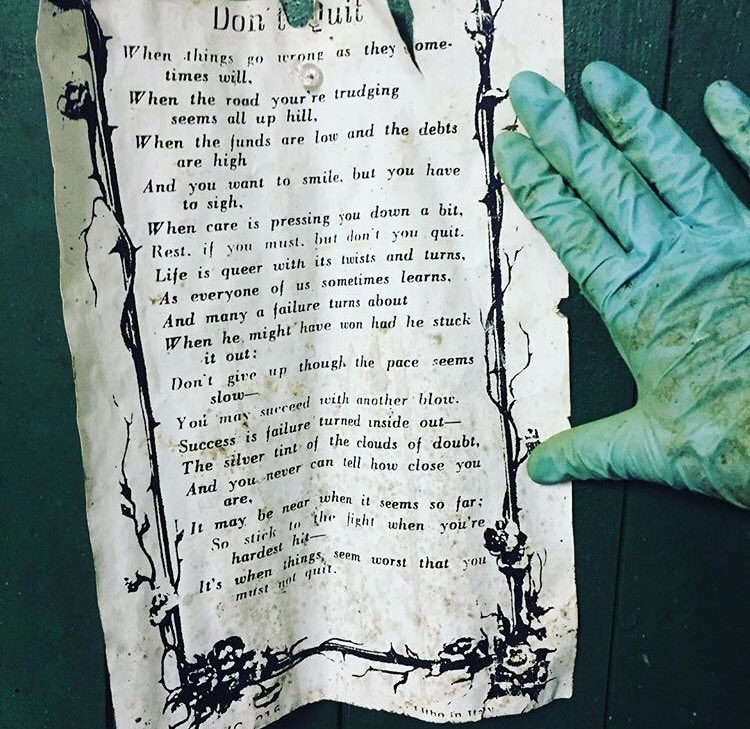 Don't Quit
When things go wrong as they some-
times will,
When the road your're trudging
seems all up hill,
When the funds are low and the debts
are high
And you want to smile, but you have
to sigh,
When care is pressing you down a bit,
Rest, if you must, but don't you quit.
Life is queer with its twists and turns,
As everyone of us sometimes learns,
And many a failure turns about
When he might have won had he stuck
it out:
Don't give up though the pace seems
slow—
You may succeed with another blow.
Success is failure turned inside out—
The silver tint of the clouds of doubt,
And you never can tell how close you
are,
It may be near when it seems so far;
So stick to the fight when you're
hardest hit—
It's when things seem worst that you
must not quit.
in Italy